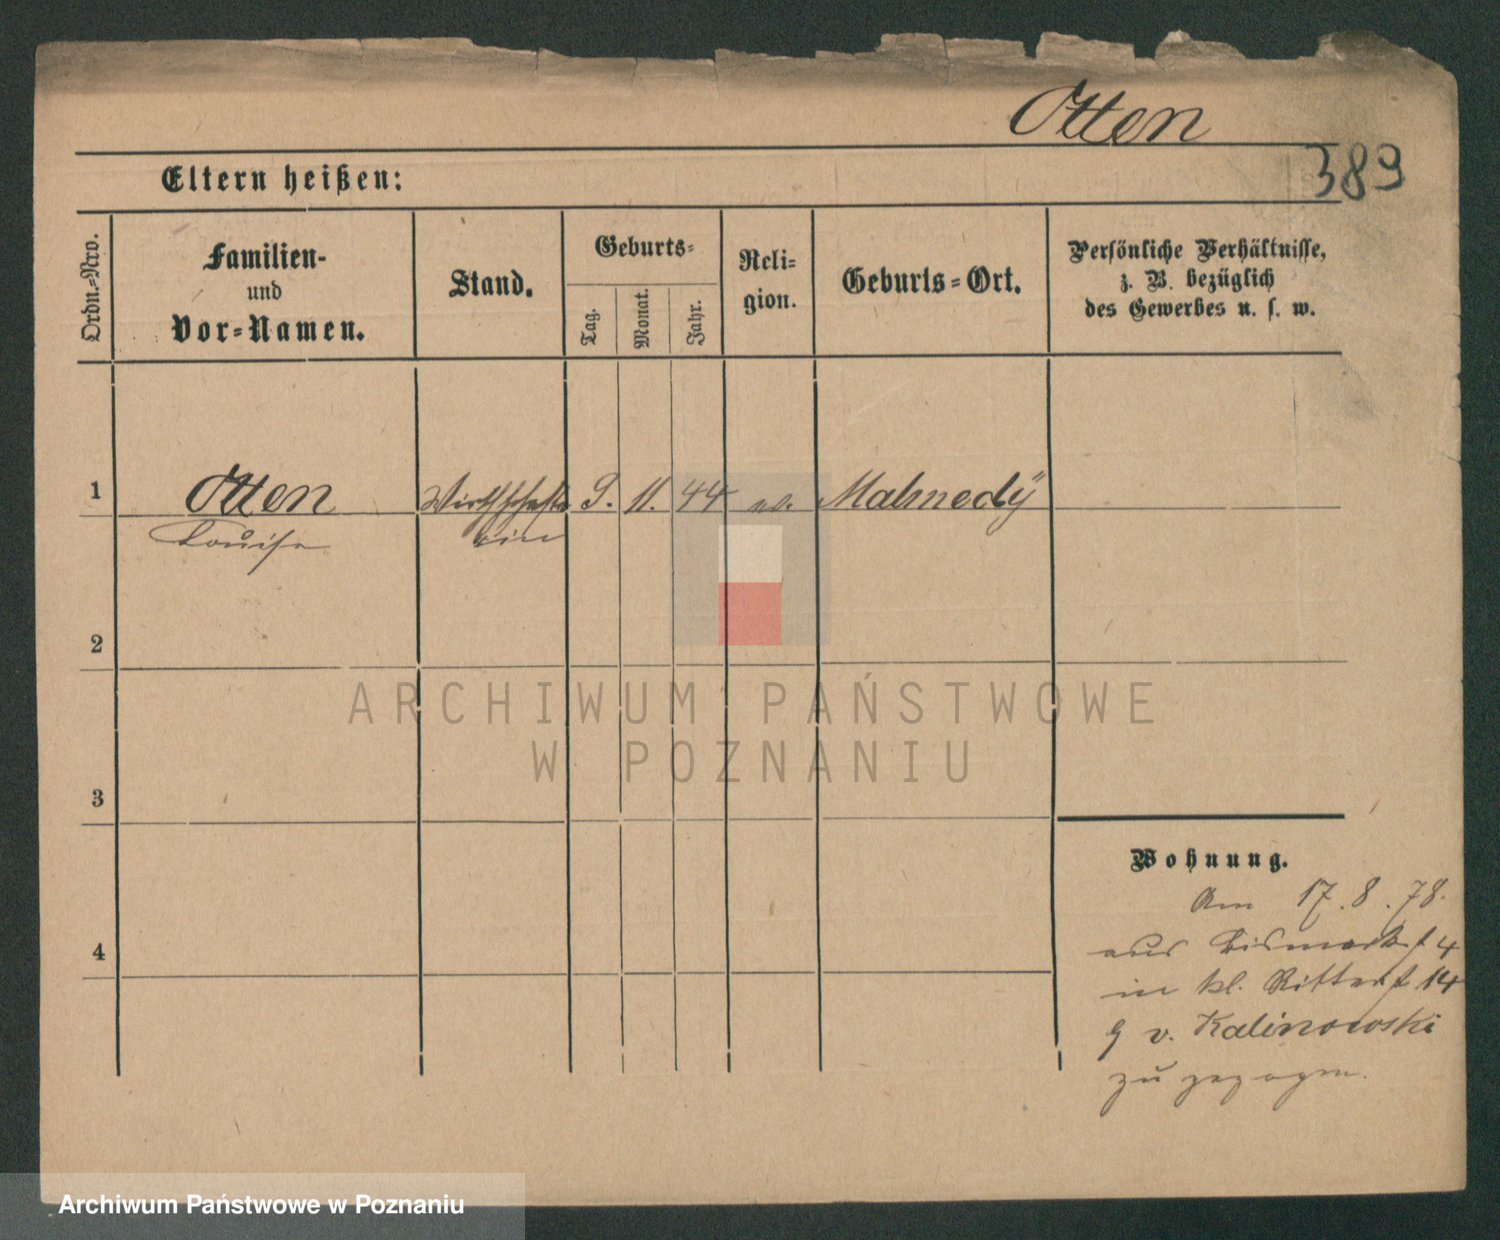 Otten
389
Eltern heißen:
Ordn.-Nro.
Familien-
und
Vor-Namen.
Stand.
Geburts-
Tag.
Monat.
Jahr.
Reli-
gion.
Geburts-Ort.
Persönliche Verhältnisse,
z. B. bezüglich
des Gewerbes u. s. w.
1
Otten
Louise
Wirthschafte
rin
9. 11. 44
Malmedÿ
2
3
4
ARCHIWUM PAŃSTWOWE
W POZNANIU
Wohnung.
Am 17.8.78.
aus Bismarkst 4
in kl. Ritterst 14
v. Kalinowski
zu gezogen.
Archiwum Państwowe w Poznaniu